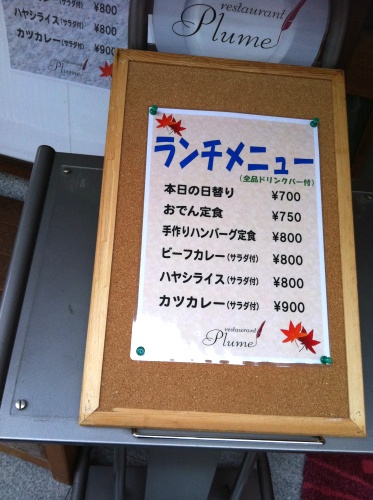 restaurant
Plume
¥800
ハヤシライス(サラダ付) ¥800
カツカレー(サラダ付) ¥900
Plume
ランチメニュー
(全品ドリンクバー付)
本日の日替り ¥700
おでん定食 ¥750
手作りハンバーグ定食 ¥800
ビーフカレー(サラダ付) ¥800
ハヤシライス(サラダ付) ¥800
カツカレー(サラダ付) ¥900
restaurant
Plume